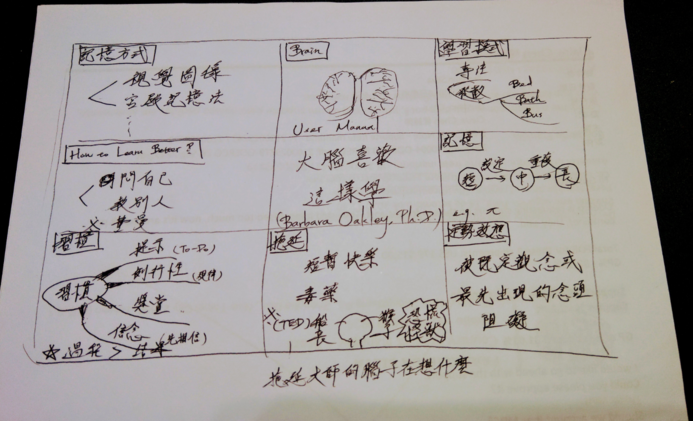 記憶方式
視覺圖像
空欲記憶法
Brain
User Manual
學習模式
專注
發散
Bed
Bath
Bus
How to Learn Better?
問自己
教別人
大腦喜歡
這樣學
(Barbara Oakley, Ph.D)
記憶
短
中
長
e.g. π
習慣
習慣
提示 (To-Do)
例行性
獎賞
信念 (先相信)
過程 > 結果
拖延
短暫快樂
毒藥
(TED) 船長
恐慌
怪獸
定勢效應
被既定觀念或
最先出現的念頭
阻礙
拖延大師的腦子在想什麼